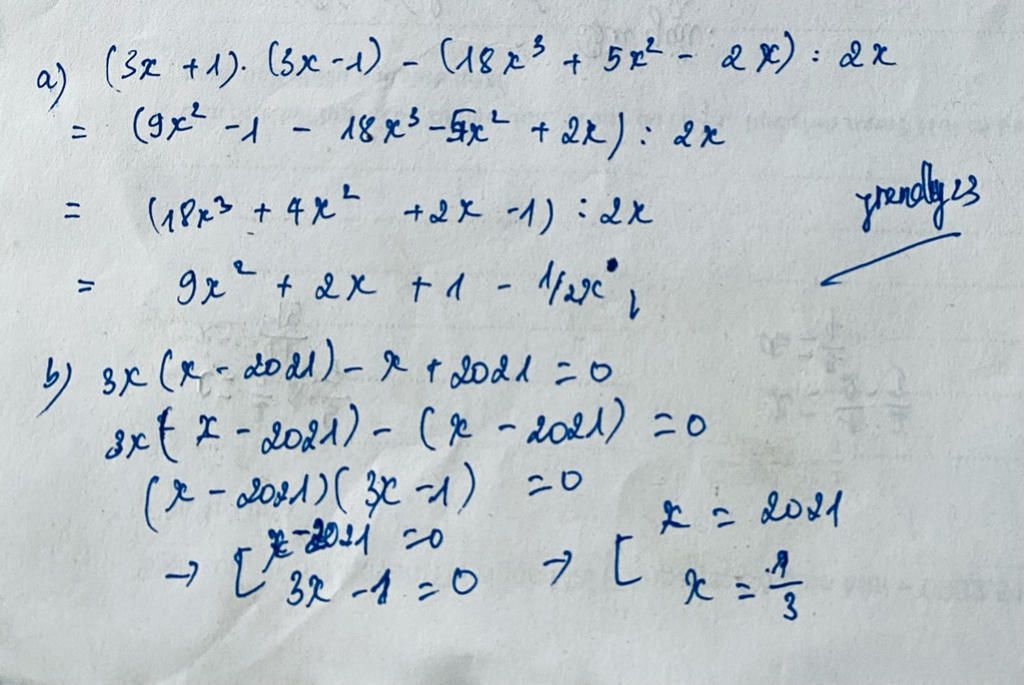 a) (3x + 1). (3x - 1) - (18x³ + 5x² - 2x) : 2x
= (9x² - 1 - 18x³ - 5x² + 2x) : 2x
= (18x³ + 4x² + 2x - 1) : 2x
= 9x² + 2x + 1 - 1/2x
b) 3x (x - 2021) - x + 2021 = 0
3x (x - 2021) - (x - 2021) = 0
(x - 2021)(3x - 1) = 0
→ [ x - 2021 = 0 → [ x = 2021
3x - 1 = 0 x = 1/3